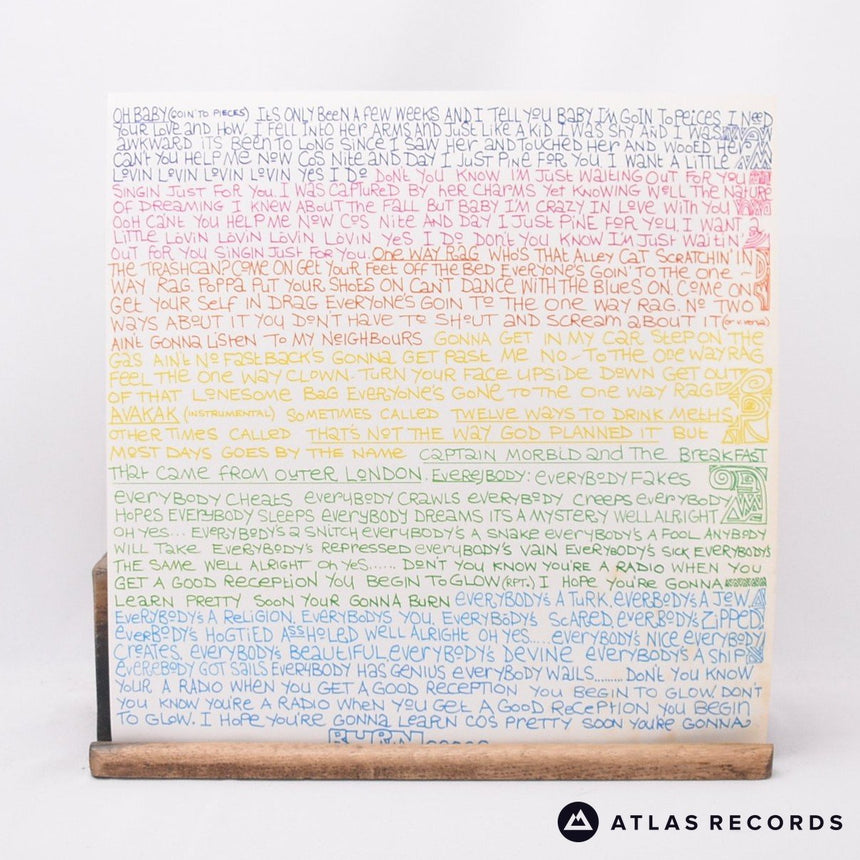 OH BABY (GOIN' TO PIECES) ITS ONLY BEEN A FEW WEEKS AND I TELL YOU BABY I'M GOIN TO PEICES, I NEED
YOUR LOVE AND HOW, I FELL INTO HER ARMS AND JUST LIKE A KID I WAS SHY AND I WAS
AWKWARD ITS BEEN TO LONG SINCE I SAW HER AND TOUCHED HER AND WOOED HER
CAN'T YOU HELP ME NOW COS NITE AND DAY I JUST PINE FOR YOU I WANT A LITTLE
LOVIN LOVIN LOVIN LOVIN YES I DO DON'T YOU KNOW I'M JUST WAITING OUT FOR YOU
SINGIN JUST FOR YOU. I WAS CAPTURED BY HER CHARMS YET KNOWING WELL THE NATURE
OF DREAMING I KNEW ABOUT THE FALL BUT BABY I'M CRAZY IN LOVE WITH YOU
OOH CAN'T YOU HELP ME NOW COS NITE AND DAY I JUST PINE FOR YOU, I WANT A
LITTLE LOVIN LOVIN LOVIN LOVIN YES I DO DON'T YOU KNOW I'M JUST WAITIN
OUT FOR YOU SINGIN JUST FOR YOU. ONE WAY RAG WHO'S THAT ALLEY CAT SCRATCHIN' IN
THE TRASHCAN? COME ON GET YOUR FEET OFF THE BED EVERYONE'S GOIN' TO THE ONE ~
WAY RAG. POPPA PUT YOUR SHOES ON CAN'T DANCE WITH THE BLUES ON, COME ON
GET YOUR SELF IN DRAG EVERYONE'S GOIN TO THE ONE WAY RAG. NO TWO
WAYS ABOUT IT YOU DON'T HAVE TO SHOUT AND SCREAM ABOUT IT (OR V. VERSA)
AIN'T GONNA LISTEN TO MY NEIGHBOURS GONNA GET IN MY CAR STEP ON THE
GAS AIN'T NO FASTBACK'S GONNA GET PAST ME NO - TO THE ONE WAY RAG
FEEL THE ONE WAY CLOWN. TURN YOUR FACE UPSIDE DOWN GET OUT
OF THAT LONESOME BAG EVERYONE'S GONE TO THE ONE WAY RAG
AVAKAK (INSTRUMENTAL) SOMETIMES CALLED TWELVE WAYS TO DRINK METHS,
OTHER TIMES CALLED THAT'S NOT THE WAY GOD PLANNED IT BUT
MOST DAYS GOES BY THE NAME CAPTAIN MORBID AND THE BREAKFAST
THAT CAME FROM OUTER LONDON. EVEREJBODY: EVERYBODY FAKES
EVERYBODY CHEATS EVERYBODY CRAWLS EVERYBODY CREEPS EVERYBODY
HOPES EVERYBODY SLEEPS EVERYBODY DREAMS ITS A MYSTERY WELL ALRIGHT
OH YES... EVERYBODY'S A SNITCH EVERYBODY'S A SNAKE EVERYBODY'S A FOOL ANYBODY
WILL TAKE EVERYBODY'S REPRESSED EVERYBODY'S VAIN EVERYBODY'S SICK EVERYBODY'S
THE SAME WELL ALRIGHT OH YES...... DON'T YOU KNOW YOU'RE A RADIO WHEN YOU
GET A GOOD RECEPTION YOU BEGIN TO GLOW (RPT.) I HOPE YOU'RE GONNA
LEARN PRETTY SOON YOUR GONNA BURN EVERYBODY'S A TURK, EVERBODY'S A JEW
EVERYBODY'S A RELIGION, EVERYBODYS YOU, EVERYBODY'S SCARED EVERBODY'S ZIPPED
EVERBODY'S HOGTIED ASSHOLED WELL ALRIGHT OH YES.... EVERYBODY'S NICE EVERYBODY
CREATES, EVERYBODY'S BEAUTIFUL EVERYBODY'S DEVINE EVERYBODY'S A SHIP
EVEREBODY GOT SAILS EVERYBODY HAS GENIUS EVERYBODY WAILS......... DON'T YOU KNOW
YOUR A RADIO WHEN YOU GET A GOOD RECEPTION YOU BEGIN TO GLOW, DON'T
YOU KNOW YOU'RE A RADIO WHEN YOU GET A GOOD RECEPTION YOU BEGIN
TO GLOW. I HOPE YOU'RE GONNA LEARN COS PRETTY SOON YOU'RE GONNA
BURN
ATLAS RECORDS